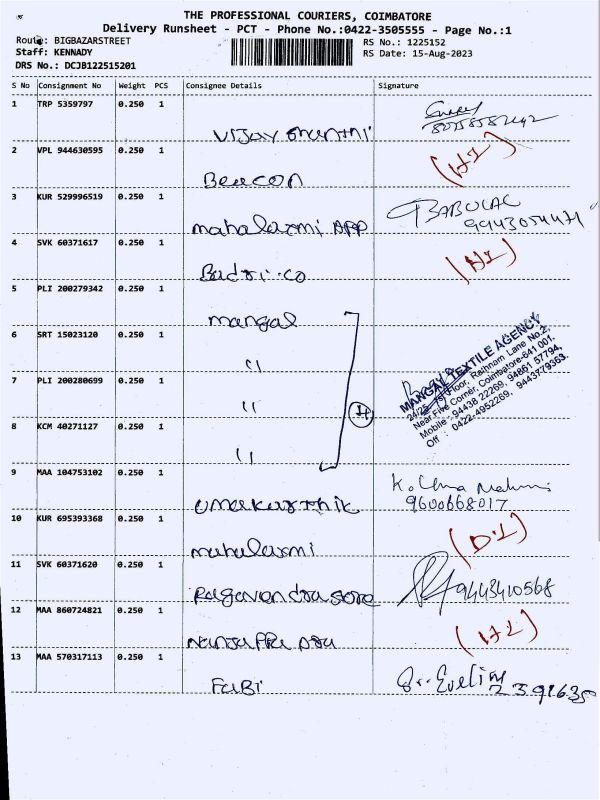 THE PROFESSIONAL COURIERS, COIMBATORE
Delivery Runsheet - PCT - Phone No.:0422-3505555 - Page No.:1
Route: BIGBAZARSTREET RS No.: 1225152
Staff: KENNADY RS Date: 15-Aug-2023
DRS No.: DCJB122515201
S No Consignment No Weight PCS Consignee Details Signature
1 TRP 5359797 0.250 1
2 VPL 944630595 0.250 1
Beacon
3 KUR 529996519 0.250 1 BABULAL
mahalaxmi APP 9943054471
4 SVK 60371617 0.250 1
Badri.co
5 PLI 200279342 0.250 1
mangal
6 SRT 15023120 0.250 1
"
7 PLI 200280699 0.250 1
"
8 KCM 40271127 0.250 1
"
4
MANGAL TEXTILE AGENCY
24/25, 1st Floor, Rathnam Lane No.2,
Near Five Corner, Coimbatore-641 001.
Mobile : 94438 22269, 94861 57794,
Off : 0422-4952269, 9443779363.
9 MAA 104753102 0.250 1
umakarthik 9600668017
10 KUR 695393368 0.250 1
mahalaxmi
11 SVK 60371620 0.250 1
Ragavendra store 9443410568
12 MAA 860724821 0.250 1
13 MAA 570317113 0.250 1
Fabi 2391635